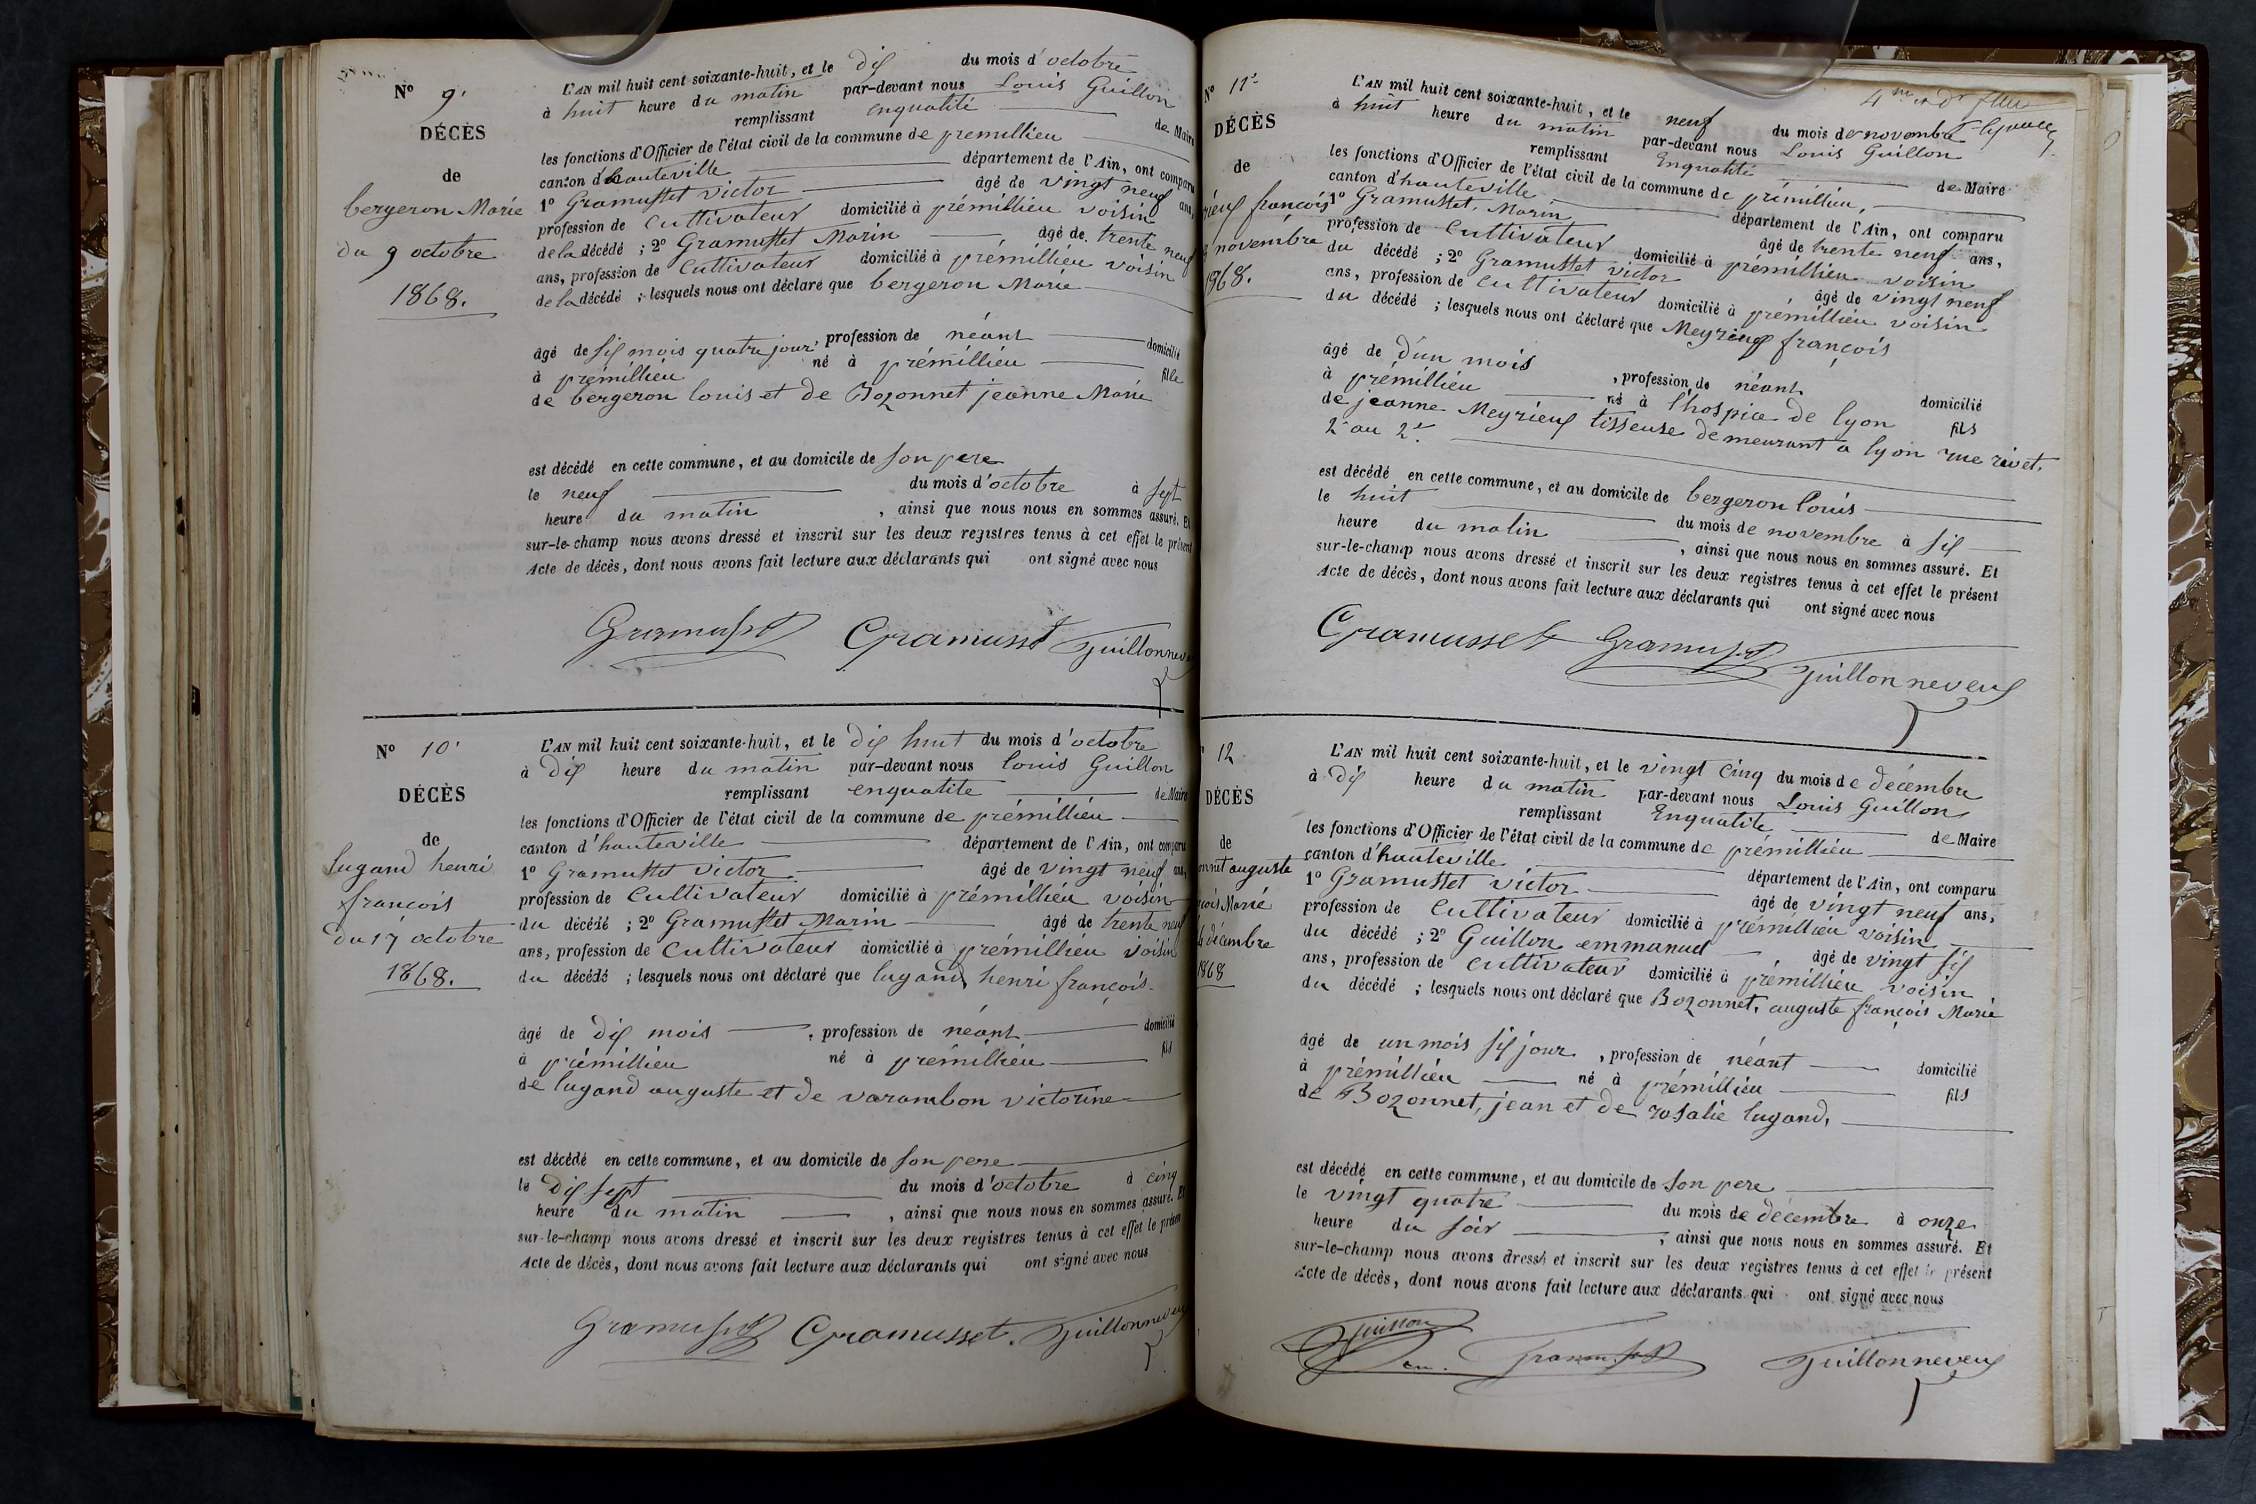 N° 9.
DÉCÈS
de
bergeron Marie
du 9 octobre
1868.
L'AN mil huit cent soixante-huit, et le dix du mois d'octobre
à huit heure du matin par-devant nous Louis Guillon
remplissant enqualité de Maire
les fonctions d'Officier de l'état civil de la commune de premillieu
canton d'hauteville département de l'Ain, ont comparu
1° Gramusset victor âgé de vingt neuf ans,
profession de Cultivateur domicilié à prémillieu voisin
de la décédé ; 2° Gramusset Marin âgé de trente neuf
ans, profession de Cultivateur domicilié à prémillieu voisin
de la décédé ; lesquels nous ont déclaré que bergeron Marie
âgé de six mois quatre jour, profession de néant domicilié
à prémillieu né à prémillieu fille
de bergeron louis et de Bozonnet jeanne Marie
est décédé en cette commune, et au domicile de son pere
le neuf du mois d'octobre à sept
heure du matin, ainsi que nous nous en sommes assuré. Et
sur-le-champ nous avons dressé et inscrit sur les deux registres tenus à cet effet le présent
Acte de décès, dont nous avons fait lecture aux déclarants qui ont signé avec nous
Gramusset Gramusset Guillonneveu
N° 10.
DÉCÈS
de
lugand henri
françois
du 17 octobre
1868.
L'AN mil huit cent soixante-huit, et le dix huit du mois d'octobre
à dix heure du matin par-devant nous louis Guillon
remplissant enqualite de Maire
les fonctions d'Officier de l'état civil de la commune de prémillieu
canton d'hauteville département de l'Ain, ont comparu
1° Gramusset victor âgé de vingt neuf ans,
profession de Cultivateur domicilié à prémillieu voisin
du décédé ; 2° Gramusset Marin âgé de trente neuf
ans, profession de Cultivateur domicilié à prémillieu voisin
du décédé ; lesquels nous ont déclaré que lugand henri françois.
âgé de dix mois, profession de néant domicilié
à prémillieu né à prémillieu fils
de lugand auguste et de varambon victorine
est décédé en cette commune, et au domicile de son pere
le dix sept du mois d'octobre à cinq
heure du matin, ainsi que nous nous en sommes assuré. Et
sur-le-champ nous avons dressé et inscrit sur les deux registres tenus à cet effet le présent
Acte de décès, dont nous avons fait lecture aux déclarants qui ont signé avec nous
Gramusset Gramusset. Guillonneveu
N° 11
DÉCÈS
de
françois
novembre
1868.
L'AN mil huit cent soixante-huit, et le neuf du mois de novembre
à huit heure du matin par-devant nous Louis Guillon
remplissant Enqualité de Maire
les fonctions d'Officier de l'état civil de la commune de prémillieu,
canton d'hauteville département de l'Ain, ont comparu
1° Gramusset, Marin âgé de trente neuf ans,
profession de Cultivateur domicilié à prémillieu voisin
du décédé ; 2° Gramusset victor âgé de vingt neuf
ans, profession de Cultivateur domicilié à prémillieu voisin
du décédé ; lesquels nous ont déclaré que Meyrieux françois
âgé de d'un mois, profession de néant domicilié
à prémillieu né à l'hospice de lyon fils
de jeanne Meyrieux tisseuse demeurant a lyon rue rivet.
2 au 2e.
est décédé en cette commune, et au domicile de bergeron louis
le huit du mois de novembre à six
heure du matin, ainsi que nous nous en sommes assuré. Et
sur-le-champ nous avons dressé et inscrit sur les deux registres tenus à cet effet le présent
Acte de décès, dont nous avons fait lecture aux déclarants qui ont signé avec nous
Gramusset Gramusset Guillonneveux
12
DÉCÈS
de
auguste
Marie
décembre
1868
L'AN mil huit cent soixante-huit, et le vingt cinq du mois de décembre
à dix heure du matin par-devant nous Louis Guillon
remplissant Enqualité de Maire
les fonctions d'Officier de l'état civil de la commune de prémillieu
canton d'hauteville département de l'Ain, ont comparu
1° Gramusset victor âgé de vingt neuf ans,
profession de Cultivateur domicilié à prémillieu voisin
du décédé ; 2° Guillon emmanuel âgé de vingt six
ans, profession de cultivateur domicilié à prémillieu voisin
du décédé ; lesquels nous ont déclaré que Bozonnet, auguste françois Marie
âgé de un mois six jour, profession de néant domicilié
à prémillieu né à prémillieu fils
de Bozonnet, jean et de rosalie lugand,
est décédé en cette commune, et au domicile de son pere
le vingt quatre du mois de décembre à onze
heure du soir, ainsi que nous nous en sommes assuré. Et
sur-le-champ nous avons dressé et inscrit sur les deux registres tenus à cet effet le présent
Acte de décès, dont nous avons fait lecture aux déclarants qui ont signé avec nous
Guillon Gramusset Guillonneveux